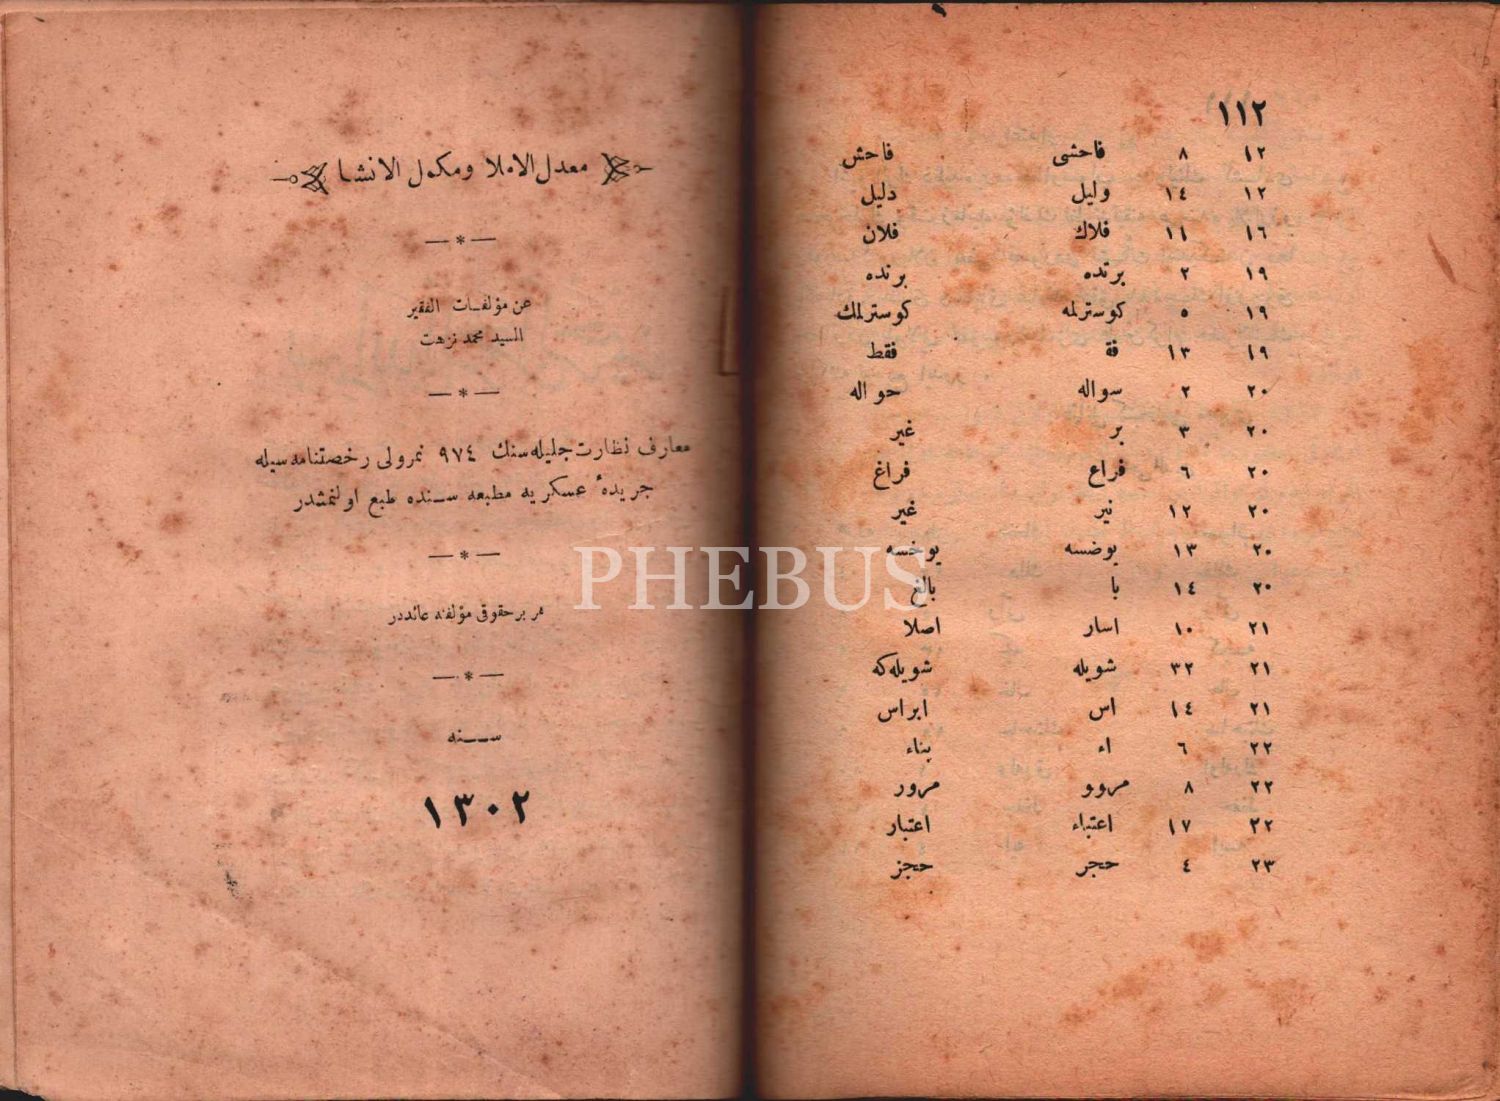 معدل الاملا ومكمل الانشا
عن مؤلفات الفقير
السيد محمد نزهت
معارف نظارت جليله سنك ٩٧٤ نمرولى رخصتنامه سيله
جريدهٔ عسكريه مطبعه سنده طبع اولنمشدر
هر بر حقوقى مؤلفنه عائددر
سنه
١٣٠٢
١١٢
١٢ ٨ فاحشى فاحش
١٢ ١٤ وليل دليل
١٦ ١١ فلاك فلان
١٩ ٢ برتده برنده
١٩ ٥ كوسترلمه كوسترلمك
١٩ ١٣ فة فقط
٢٠ ٢ سواله حواله
٢٠ ٣ بر غير
٢٠ ٦ فراع فراغ
٢٠ ١٢ نير غير
٢٠ ١٣ يوضسه يوخسه
٢٠ ١٤ با بالغ
٢١ ١٠ اسار اصلا
٢١ ٣٢ شويله شويله كه
٢١ ١٤ اس ابراس
٢٢ ٦ اء بناء
٢٢ ٨ مروو مرور
٢٢ ١٧ اعتباء اعتبار
٢٣ ٤ حجر حجز
PHEBUS